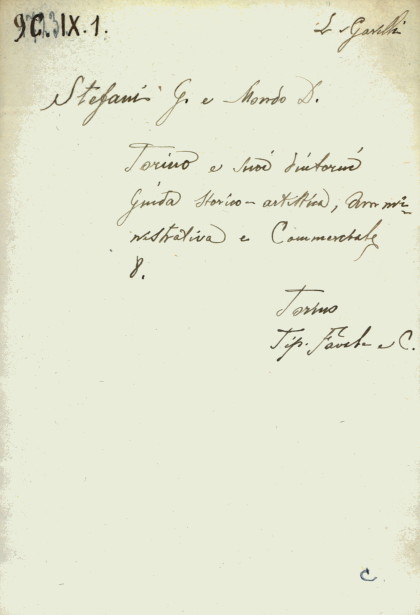 9C. IX. 1.
Stefani G. e Mondo D.
Torino e suoi dintorni
Guida storico-artistica, ammi=
nistrativa e Commerciale
8.
Torino
Tip. Favale e C.
C